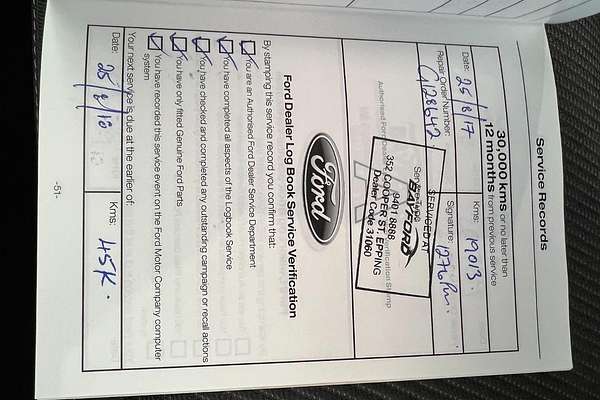 Service Records
30,000 kms or no later than
12 months from previous service
Date: 25/8/17
Kms: 19013.
Repair order Number:
Signature:
SERVICED AT
BAYFORD
9401 8888
352 COOPER ST. EPPING
Dealer Code 31060
Ford
Ford Dealer Log Book Service Verification
By stamping this service record you confirm that:
You are an Authorised Ford Dealer Service Department
You have completed all aspects of the Logbook Service
You have checked and completed any outstanding campaign or recall actions
You have only fitted Genuine Ford Parts
You have recorded this service event on the Ford Motor Company computer
system
Your next service is due at the earlier of:
Date: 25/8/18
Kms: 45K.
-51-